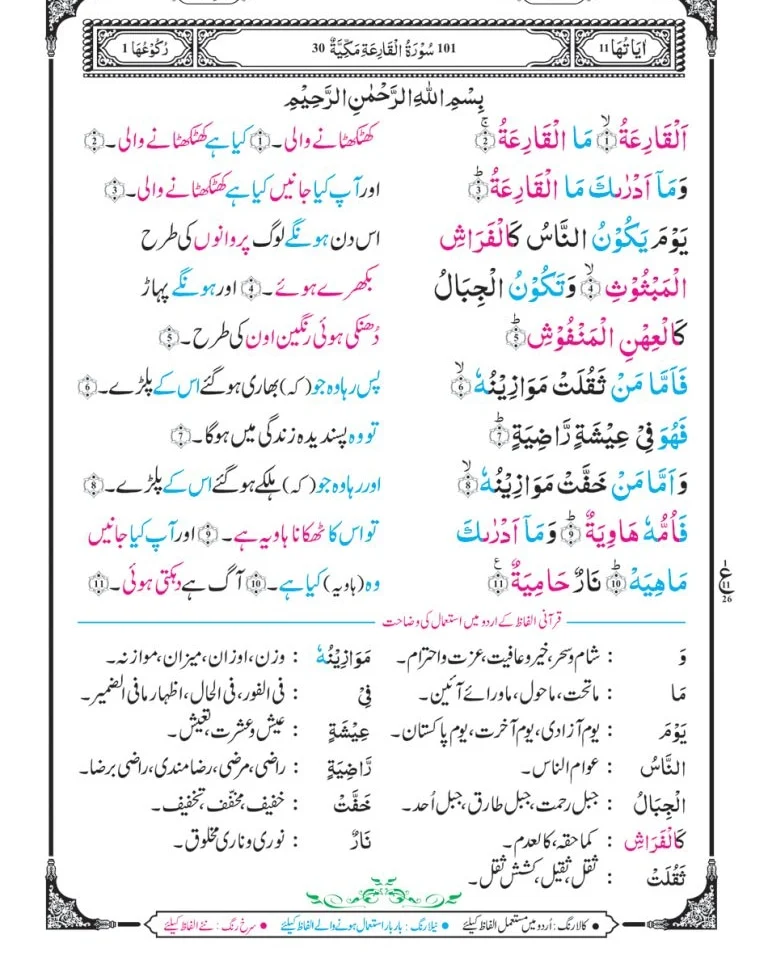 اٰیَاتُهَا 11 101 سُوْرَةُ الْقَارِعَةِ مَكِّیَّةٌ 30 رُكُوْعُهَا 1
بِسْمِ اللّٰهِ الرَّحْمٰنِ الرَّحِیْمِ
اَلْقَارِعَةُ ۙ1 مَا الْقَارِعَةُ ۚ2 کھٹکھٹانے والی۔ 1 کیا ہے کھٹکھٹانے والی۔ 2
وَمَاۤ اَدْرٰىكَ مَا الْقَارِعَةُ ؕ3 اور آپ کیا جانیں کیا ہے کھٹکھٹانے والی۔ 3
یَوْمَ یَكُوْنُ النَّاسُ كَالْفَرَاشِ اس دن ہونگے لوگ پروانوں کی طرح
الْمَبْثُوْثِ ۙ4 وَتَكُوْنُ الْجِبَالُ بکھرے ہوئے۔ 4 اور ہونگے پہاڑ
كَالْعِهْنِ الْمَنْفُوْشِ ؕ5 دُھنکی ہوئی رنگین اون کی طرح۔ 5
فَاَمَّا مَنْ ثَقُلَتْ مَوَازِیْنُهٗ ۙ6 پس رہا وہ جو (کہ) بھاری ہوگئے اس کے پلڑے۔ 6
فَهُوَ فِیْ عِیْشَةٍ رَّاضِیَةٍ ؕ7 تو وہ پسندیدہ زندگی میں ہوگا۔ 7
وَاَمَّا مَنْ خَفَّتْ مَوَازِیْنُهٗ ۙ8 اور رہا وہ جو (کہ) ہلکے ہوگئے اس کے پلڑے۔ 8
فَاُمُّهٗ هَاوِیَةٌ ؕ9 وَمَاۤ اَدْرٰىكَ تو اس کا ٹھکانا ہاویہ ہے۔ 9 اور آپ کیا جانیں
مَاهِیَهْ ؕ10 نَارٌ حَامِیَةٌ 11 وہ (ہاویہ) کیا ہے۔ 10 آگ ہے دہکتی ہوئی۔ 11
ع 11 26
قرآنی الفاظ کے اردو میں استعمال کی وضاحت
وَ : شام و سحر، خیر و عافیت، عزت و احترام۔ مَوَازِیْنُهٗ : وزن، اوزان، میزان، موازنہ۔
مَا : ماتحت، ماحول، ماورائے آئین۔ فِیْ : فی الفور، فی الحال، اظہار ما فی الضمیر۔
یَوْمَ : یوم آزادی، یوم آخرت، یوم پاکستان۔ عِیْشَةٍ : عیش و عشرت، تعیش۔
النَّاسُ : عوام الناس۔ رَّاضِیَةٍ : راضی، مرضی، رضامندی، راضی برضا۔
الْجِبَالُ : جبل رحمت، جبل طارق، جبل اُحد۔ خَفَّتْ : خفیف، مخفف، تخفیف۔
كَالْفَرَاشِ : کما حقہ، کالعدم۔ نَارٌ : نوری و ناری مخلوق۔
ثَقُلَتْ : ثقل، ثقیل، کشش ثقل۔
● کالا رنگ : اُردو میں مستعمل الفاظ کیلئے ● نیلا رنگ : بار بار استعمال ہونے والے الفاظ کیلئے ● سرخ رنگ : نئے الفاظ کیلئے